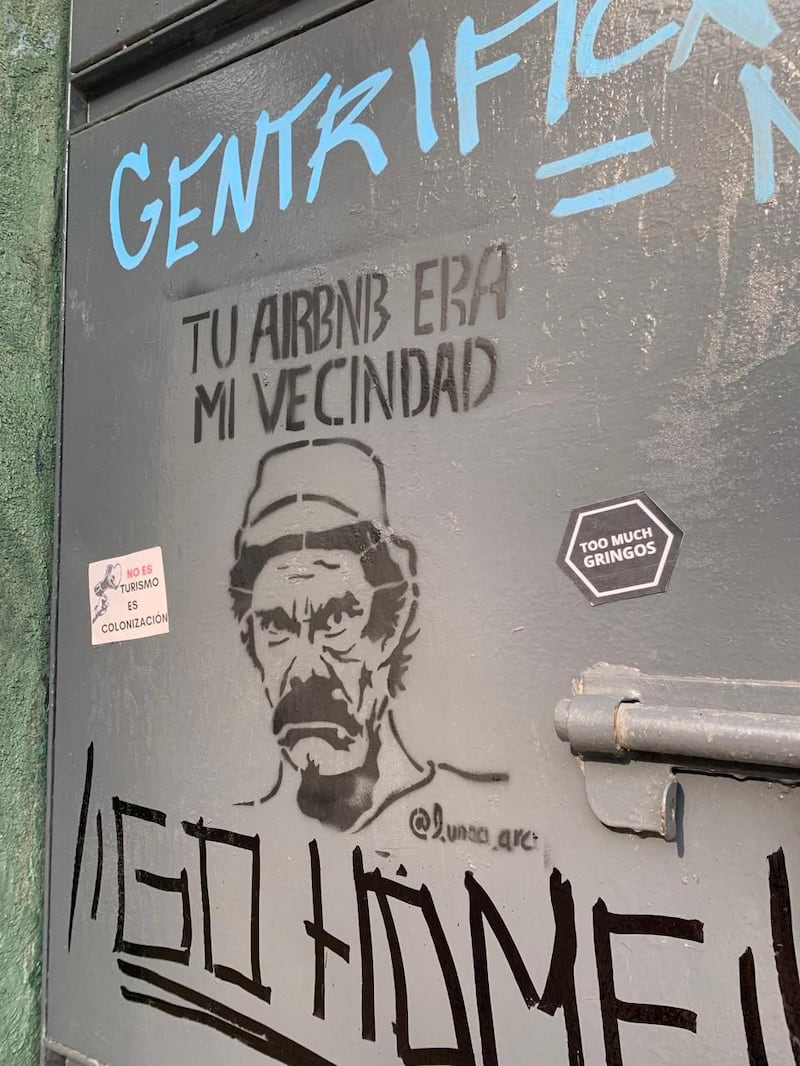 GENTRIFICA
TU AIRBNB ERA
MI VECINDAD
NO ES
TURISMO
ES
COLONIZACIÓN
TOO MUCH
GRINGOS
GO HOME